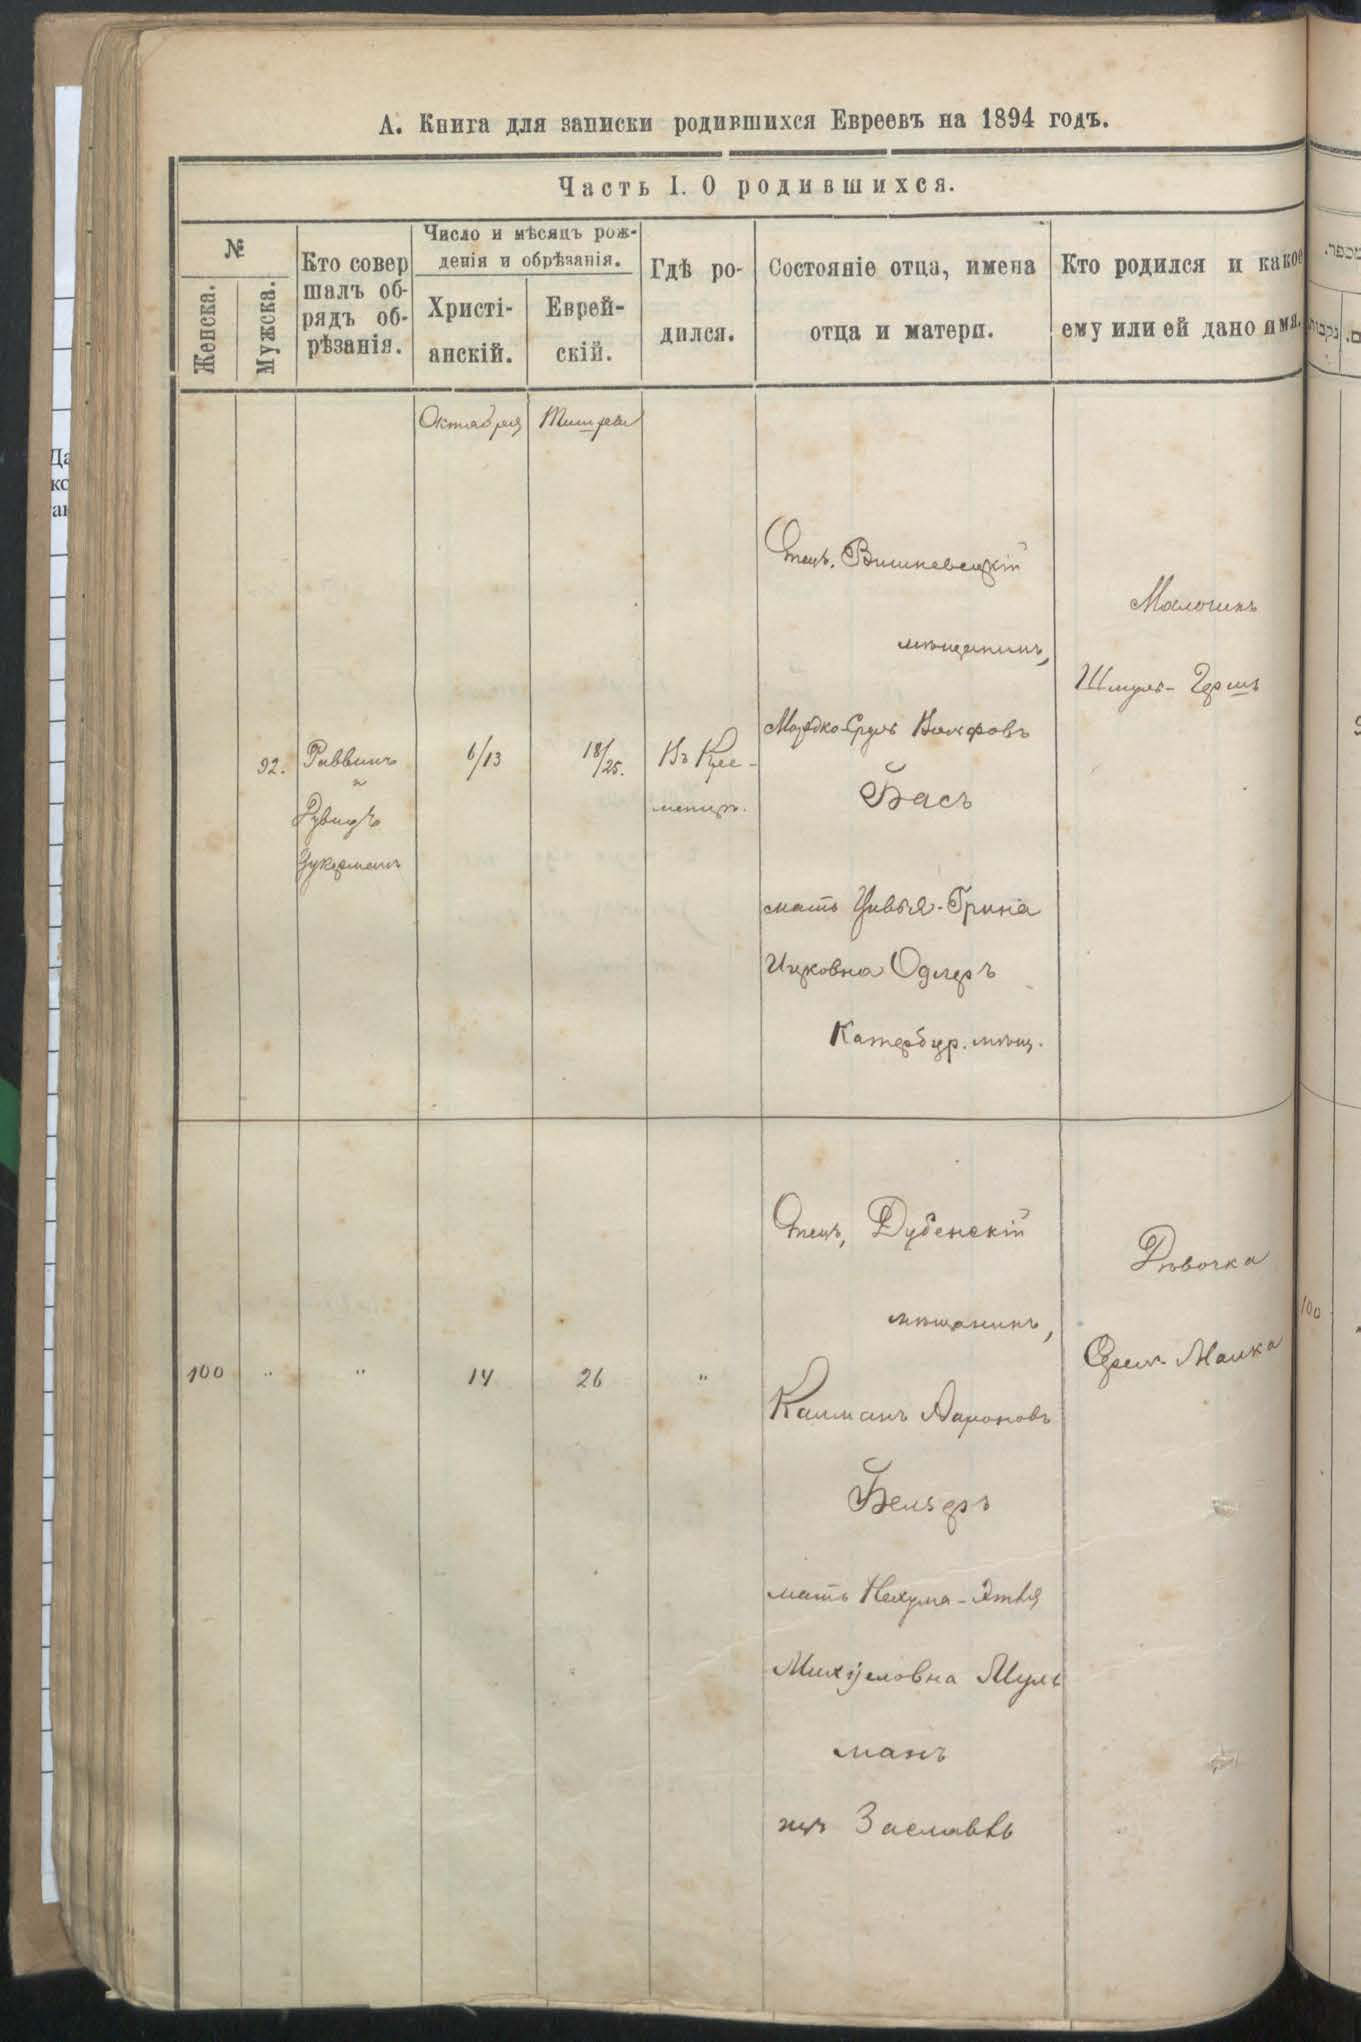 А. Книга для записки родившихся Евреевъ на 1894 годъ.
Часть I. О родившихся.
№
Женска.
Мужска.
Кто совер
шалъ об-
рядъ об-
рѣзанія.
Число и мѣсяцъ рож-
денія и обрѣзанія.
Христі-
анскій.
Еврей-
скій.
Гдѣ ро-
дился.
Состояніе отца, имена
отца и матери.
Кто родился и какое
ему или ей дано имя.
Октября
Тишрей
92.
Раввинъ
и
Рувидъ
Цукерманъ
6/13
18/25.
Въ Кре-
менцѣ.
Отецъ, Вишневецкій
мѣщанинъ,
Мордко-Сруль Вольфовъ
Басъ
мать Цивья-Грина
Ицковна Одлеръ
Катербур. мѣщ.
Мальчикъ
Шмуль-Гершъ
100
"
"
14
26
"
Отецъ, Дубенскій
мѣщанинъ,
Калманъ Аароновъ
Бельзеръ
мать Нехума-Этья
Михелевна Муль
манъ
изъ Заславль
Дѣвочка
Малка
100